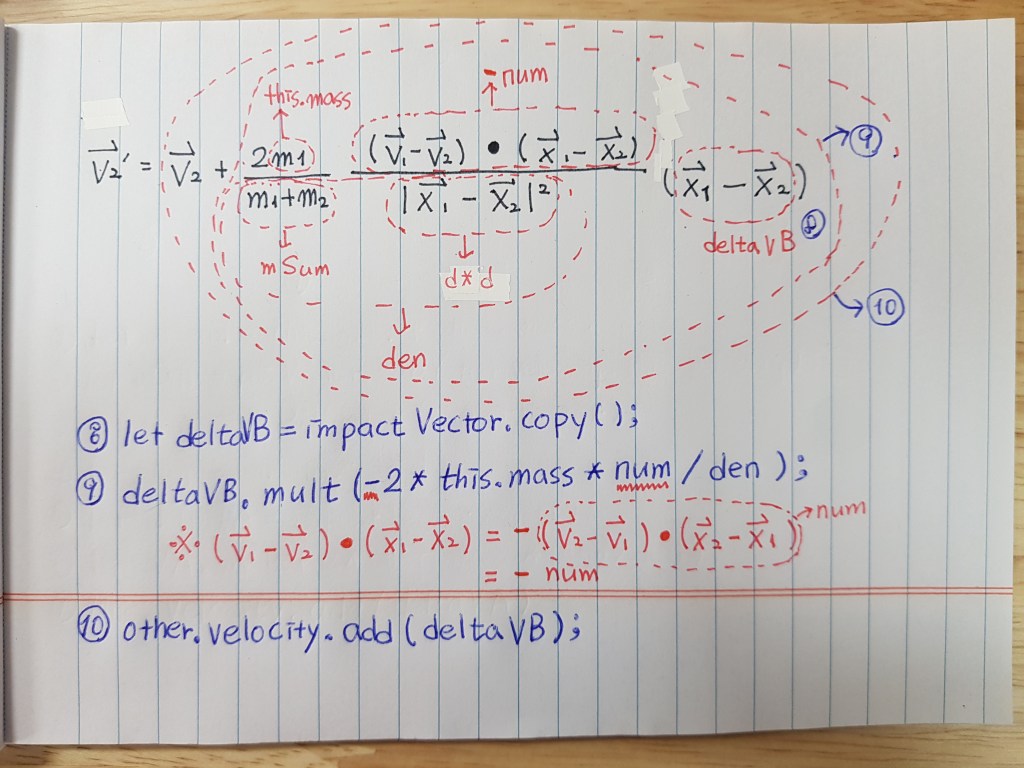 this.mass
-num
V₂' = V₂ + 2m₁ / (m₁+m₂) (V₁-V₂) • (x₁-x₂) / |x₁-x₂|² (x₁-x₂)
⑨
deltaVB ⑧
mSum
d*d
⑩
den
⑧ let deltaVB = impactVector.copy();
⑨ deltaVB.mult(-2 * this.mass * num / den);
※ (V₁-V₂)•(x₁-x₂) = -(V₂-V₁)•(x₂-x₁) → num
= - num
⑩ other.velocity.add(deltaVB);